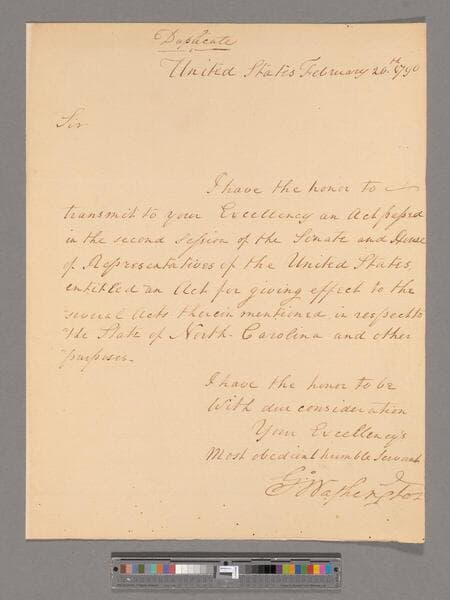 Duplicate
United States February 20.th 1790
Sir
I have the honor to
transmit to your Excellency an Act passed
in the second Session of the Senate and House
of Representatives of the United States,
entitled an Act for giving effect to the
several Acts therein mentioned in respect to
the State of North-Carolina and other
purposes.
I have the honor to be
With due consideration
Your Excellency's
Most obedient humble Servant
Go Washington